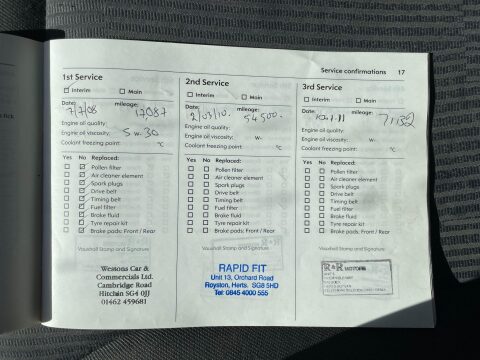 Service confirmations 17
1st Service
Interim Main
Date: 7/7/08 mileage: 17087
Engine oil quality:
Engine oil viscosity: 5 w- 30
Coolant freezing point: °C
Yes No Replaced:
Pollen filter
Air cleaner element
Spark plugs
Drive belt
Timing belt
Fuel filter
Brake fluid
Tyre repair kit
Brake pads: Front / Rear
Vauxhall Stamp and Signature
Wessons Car &
Commercials Ltd.
Cambridge Road
Hitchin SG4 0JJ
01462 459681
2nd Service
Interim Main
Date: 2/03/10. mileage: 54500.
Engine oil quality:
Engine oil viscosity: w-
Coolant freezing point: °C
Yes No Replaced:
Pollen filter
Air cleaner element
Spark plugs
Drive belt
Timing belt
Fuel filter
Brake fluid
Tyre repair kit
Brake pads: Front / Rear
Vauxhall Stamp and Signature
RAPID FIT
Unit 13, Orchard Road
Royston, Herts. SG8 5HD
Tel: 0845 4000 555
3rd Service
Interim Main
Date: mileage: 71132
Engine oil quality:
Engine oil viscosity: w-
Coolant freezing point: °C
Yes No Replaced:
Pollen filter
Air cleaner element
Spark plugs
Drive belt
Timing belt
Fuel filter
Brake fluid
Tyre repair kit
Brake pads: Front / Rear
Vauxhall Stamp and Signature
R&R MOTORS